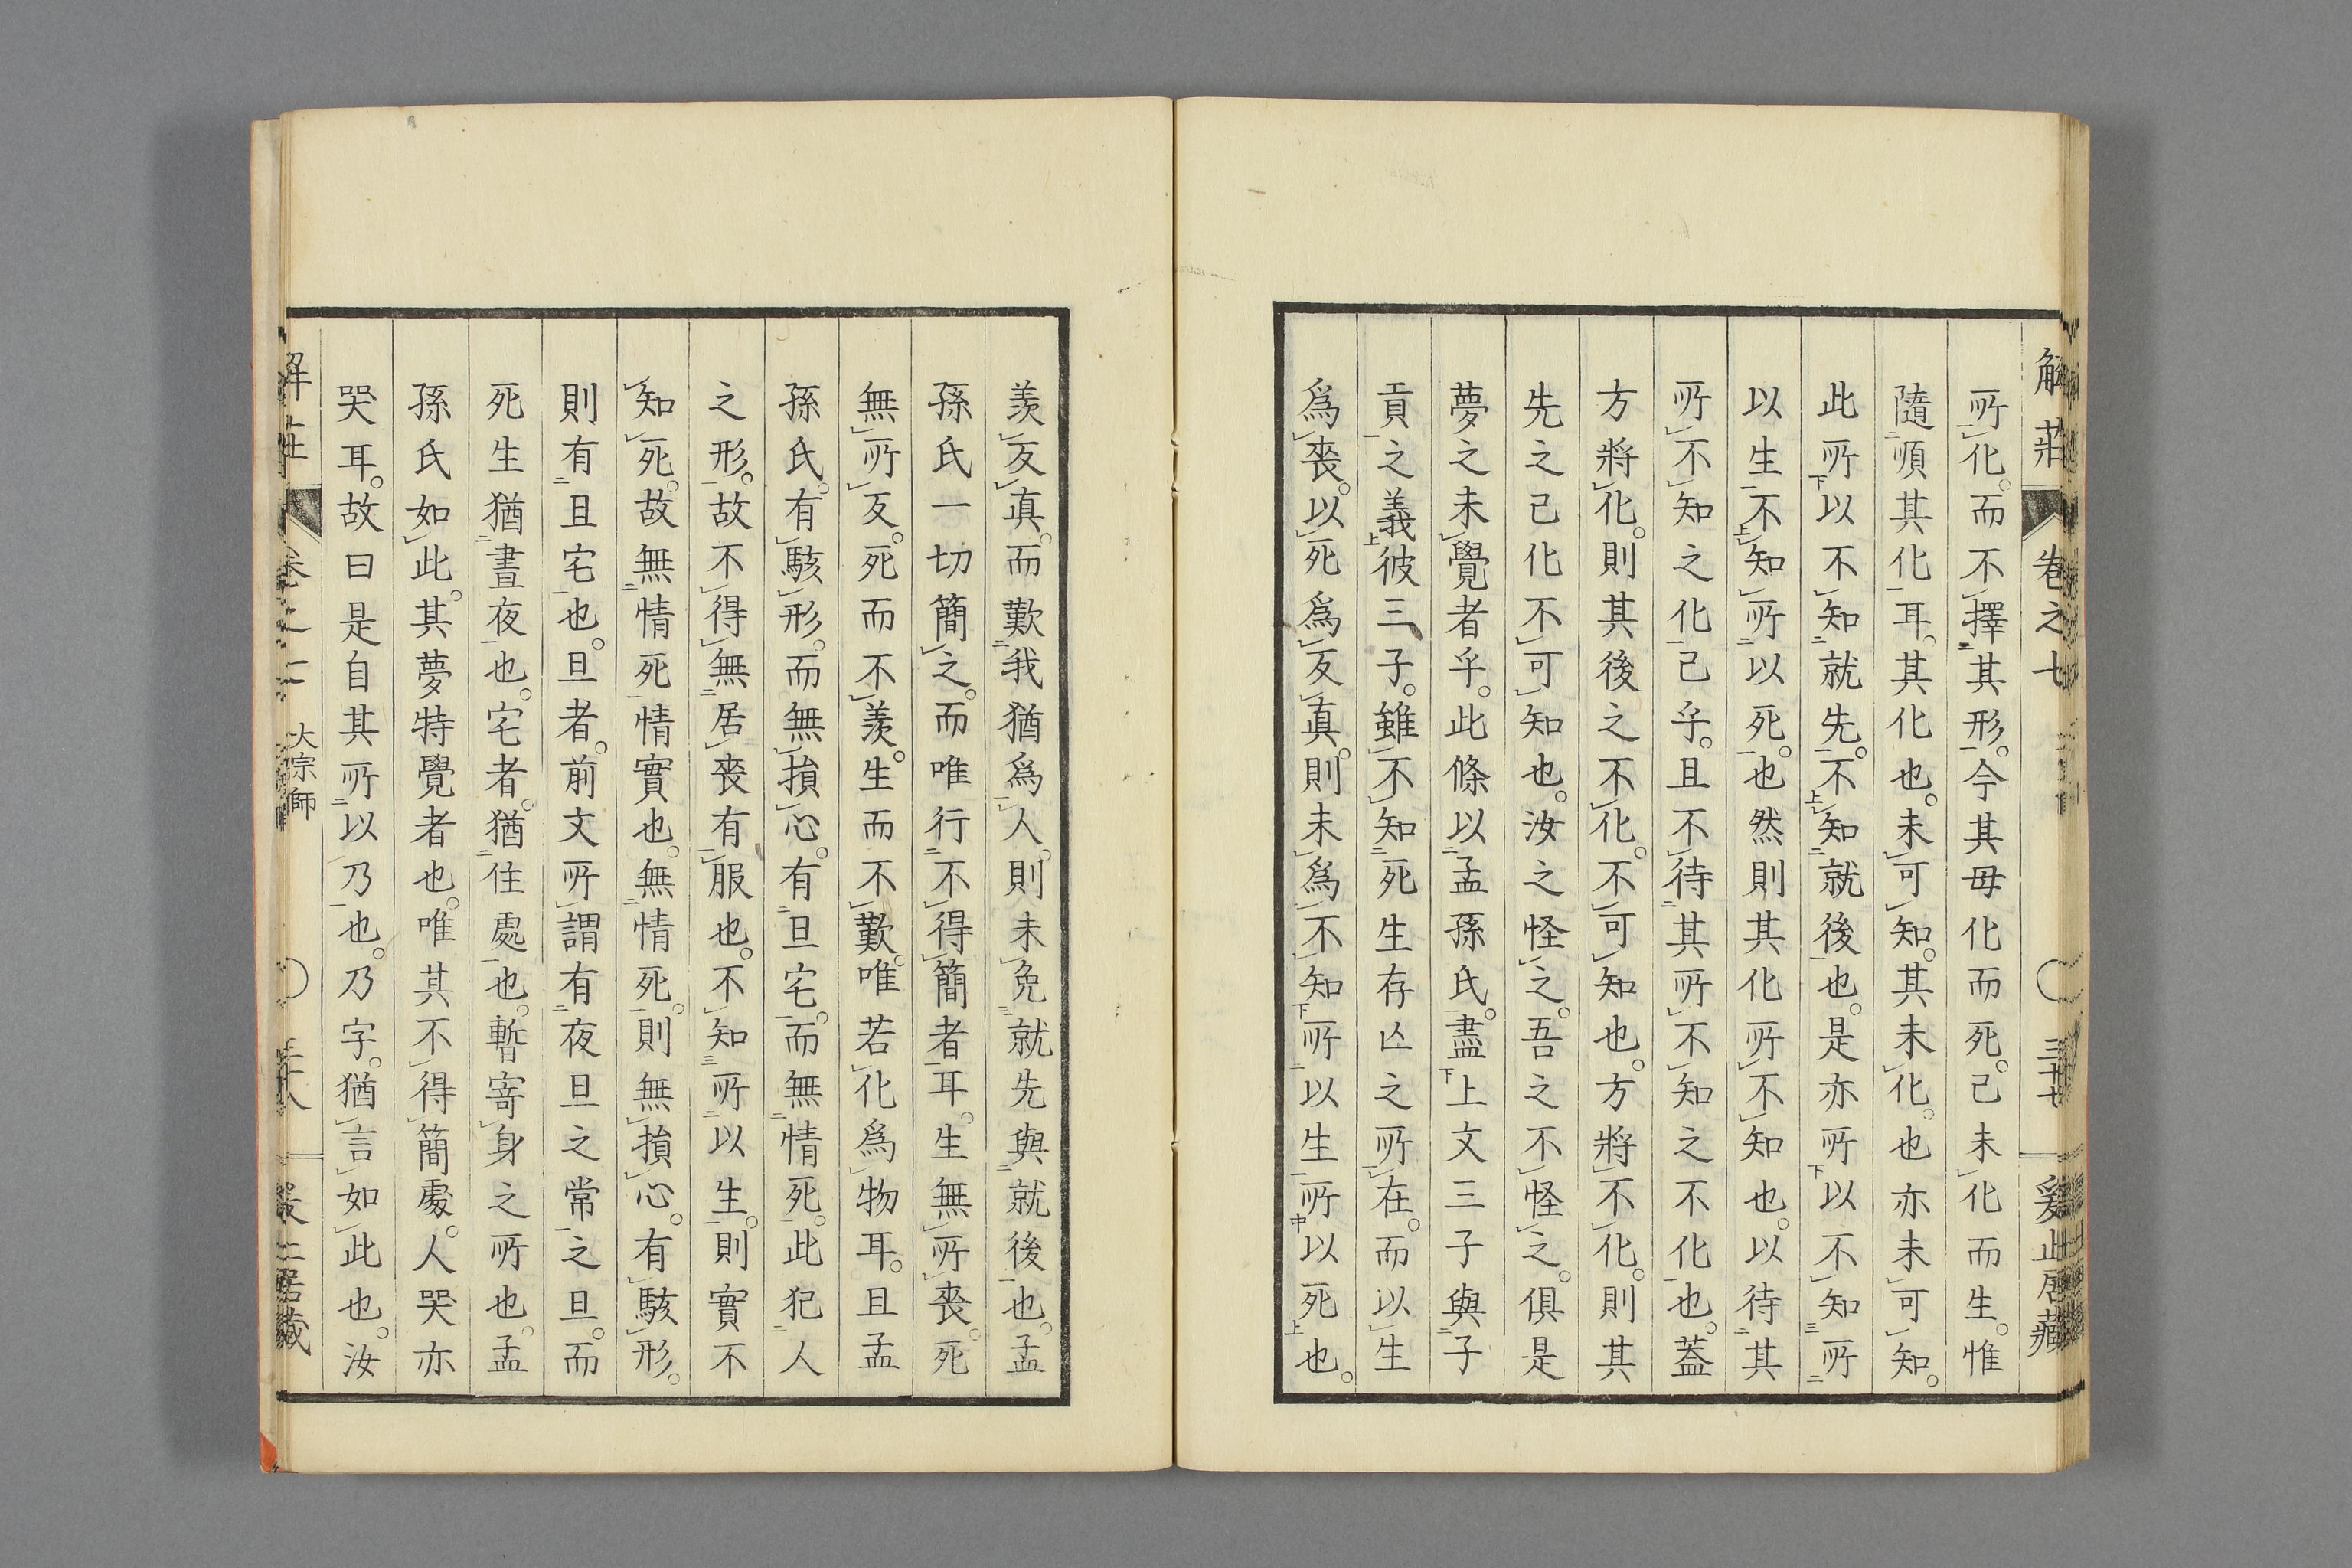 解莊 卷之七 三十七 爰止居藏
所化。而不擇其形。今其母化而死。己未化而生。惟
隨順其化耳。其化也。未可知。其未化。也亦未可知。
此所以不知就先。不知就後也。是亦所以不知所
以生不知所以死。也然則其化所不知也。以待其
所不知之化己乎。且不待其所不知之不化也。蓋
方將化。則其後之不化。不可知也。方將不化。則其
先之己化不可知也。汝之怪之。吾之不怪之。俱是
夢之未覺者乎。此條以孟孫氏。盡上文三子與子
貢之義彼三子。雖不知死生存亾之所在。而以生
爲喪。以死爲反真。則未爲不知所以生所以死也。
羨反真。而歎我猶爲人。則未免就先與就後也。孟
孫氏一切簡之。而唯行不得簡者耳。生無所喪。死
無所反。死而不羨。生而不歎。唯若化爲物耳。且孟
孫氏。有駭形。而無損心。有旦宅。而無情死。此犯人
之形。故不得無居喪有服也。不知所以生。則實不
知死。故無情死情實也。無情死。則無損心。有駭形。
則有旦宅也。旦者。前文所謂有夜旦之常之旦。而
死生猶晝夜也。宅者。猶住處也。暫寄身之所也。孟
孫氏如此。其夢特覺者也。唯其不得簡處。人哭亦
哭耳。故曰是自其所以乃也。乃字。猶言如此也。汝
解莊 卷之七 大宗師